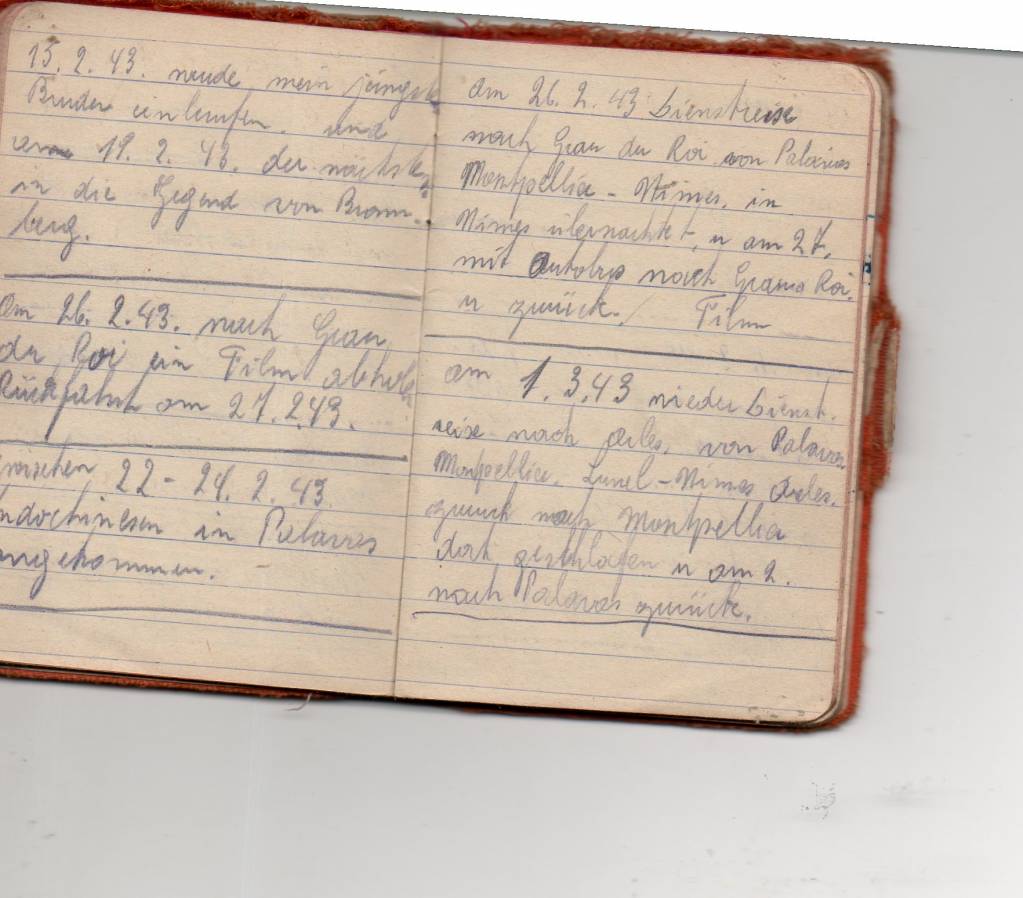 15. 2. 43. wurde mein jüngste
Bruder einberufen. und
am 19. 2. 43. der nächste
in die Gegend von Brom-
berg.
Am 26. 2. 43. nach Grau
du Roi ein Film abholen
Rückfahrt am 27. 2. 43.
zwischen 22 - 24. 2. 43.
Indochinesen in Palavas
angekommen.
Am 26. 2. 43 Dienstreise
nach Grau du Roi von Palavas
Montpellia - Nimes, in
Nimes übernachtet, u am 27.
mit Autobus nach Grau Roi.
u zurück. / Film
am 1. 3. 43 wieder Dienst.
reise nach Arles, von Palavas
Montpellia. Lunel - Nimes Arles.
zurück nach Montpellia
dort geschlafen u am 2.
nach Palavas zurück.